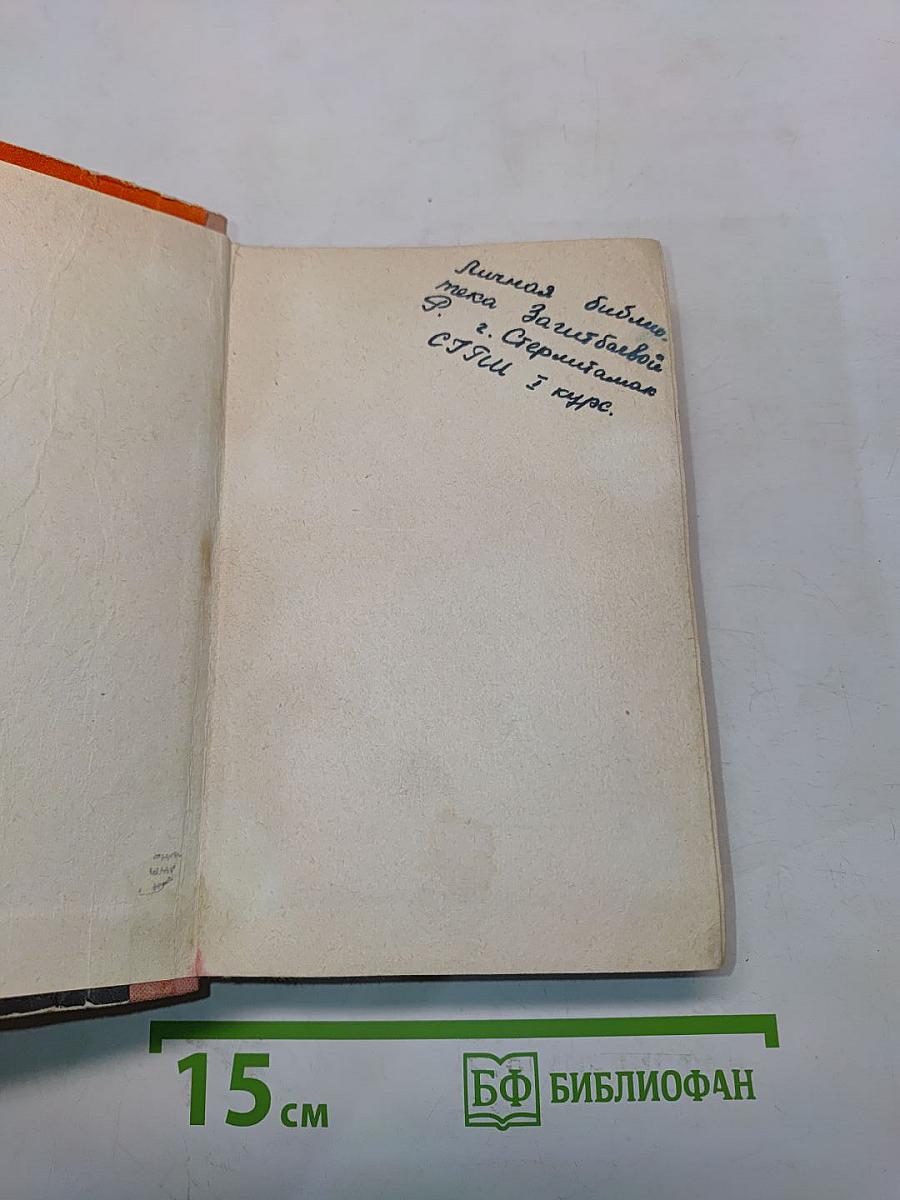 Личная библио-
тека Загитбаевой
Р. г. Стерлитамак
СГПИ I курс.
15 см
БФ БИБЛИОФАН